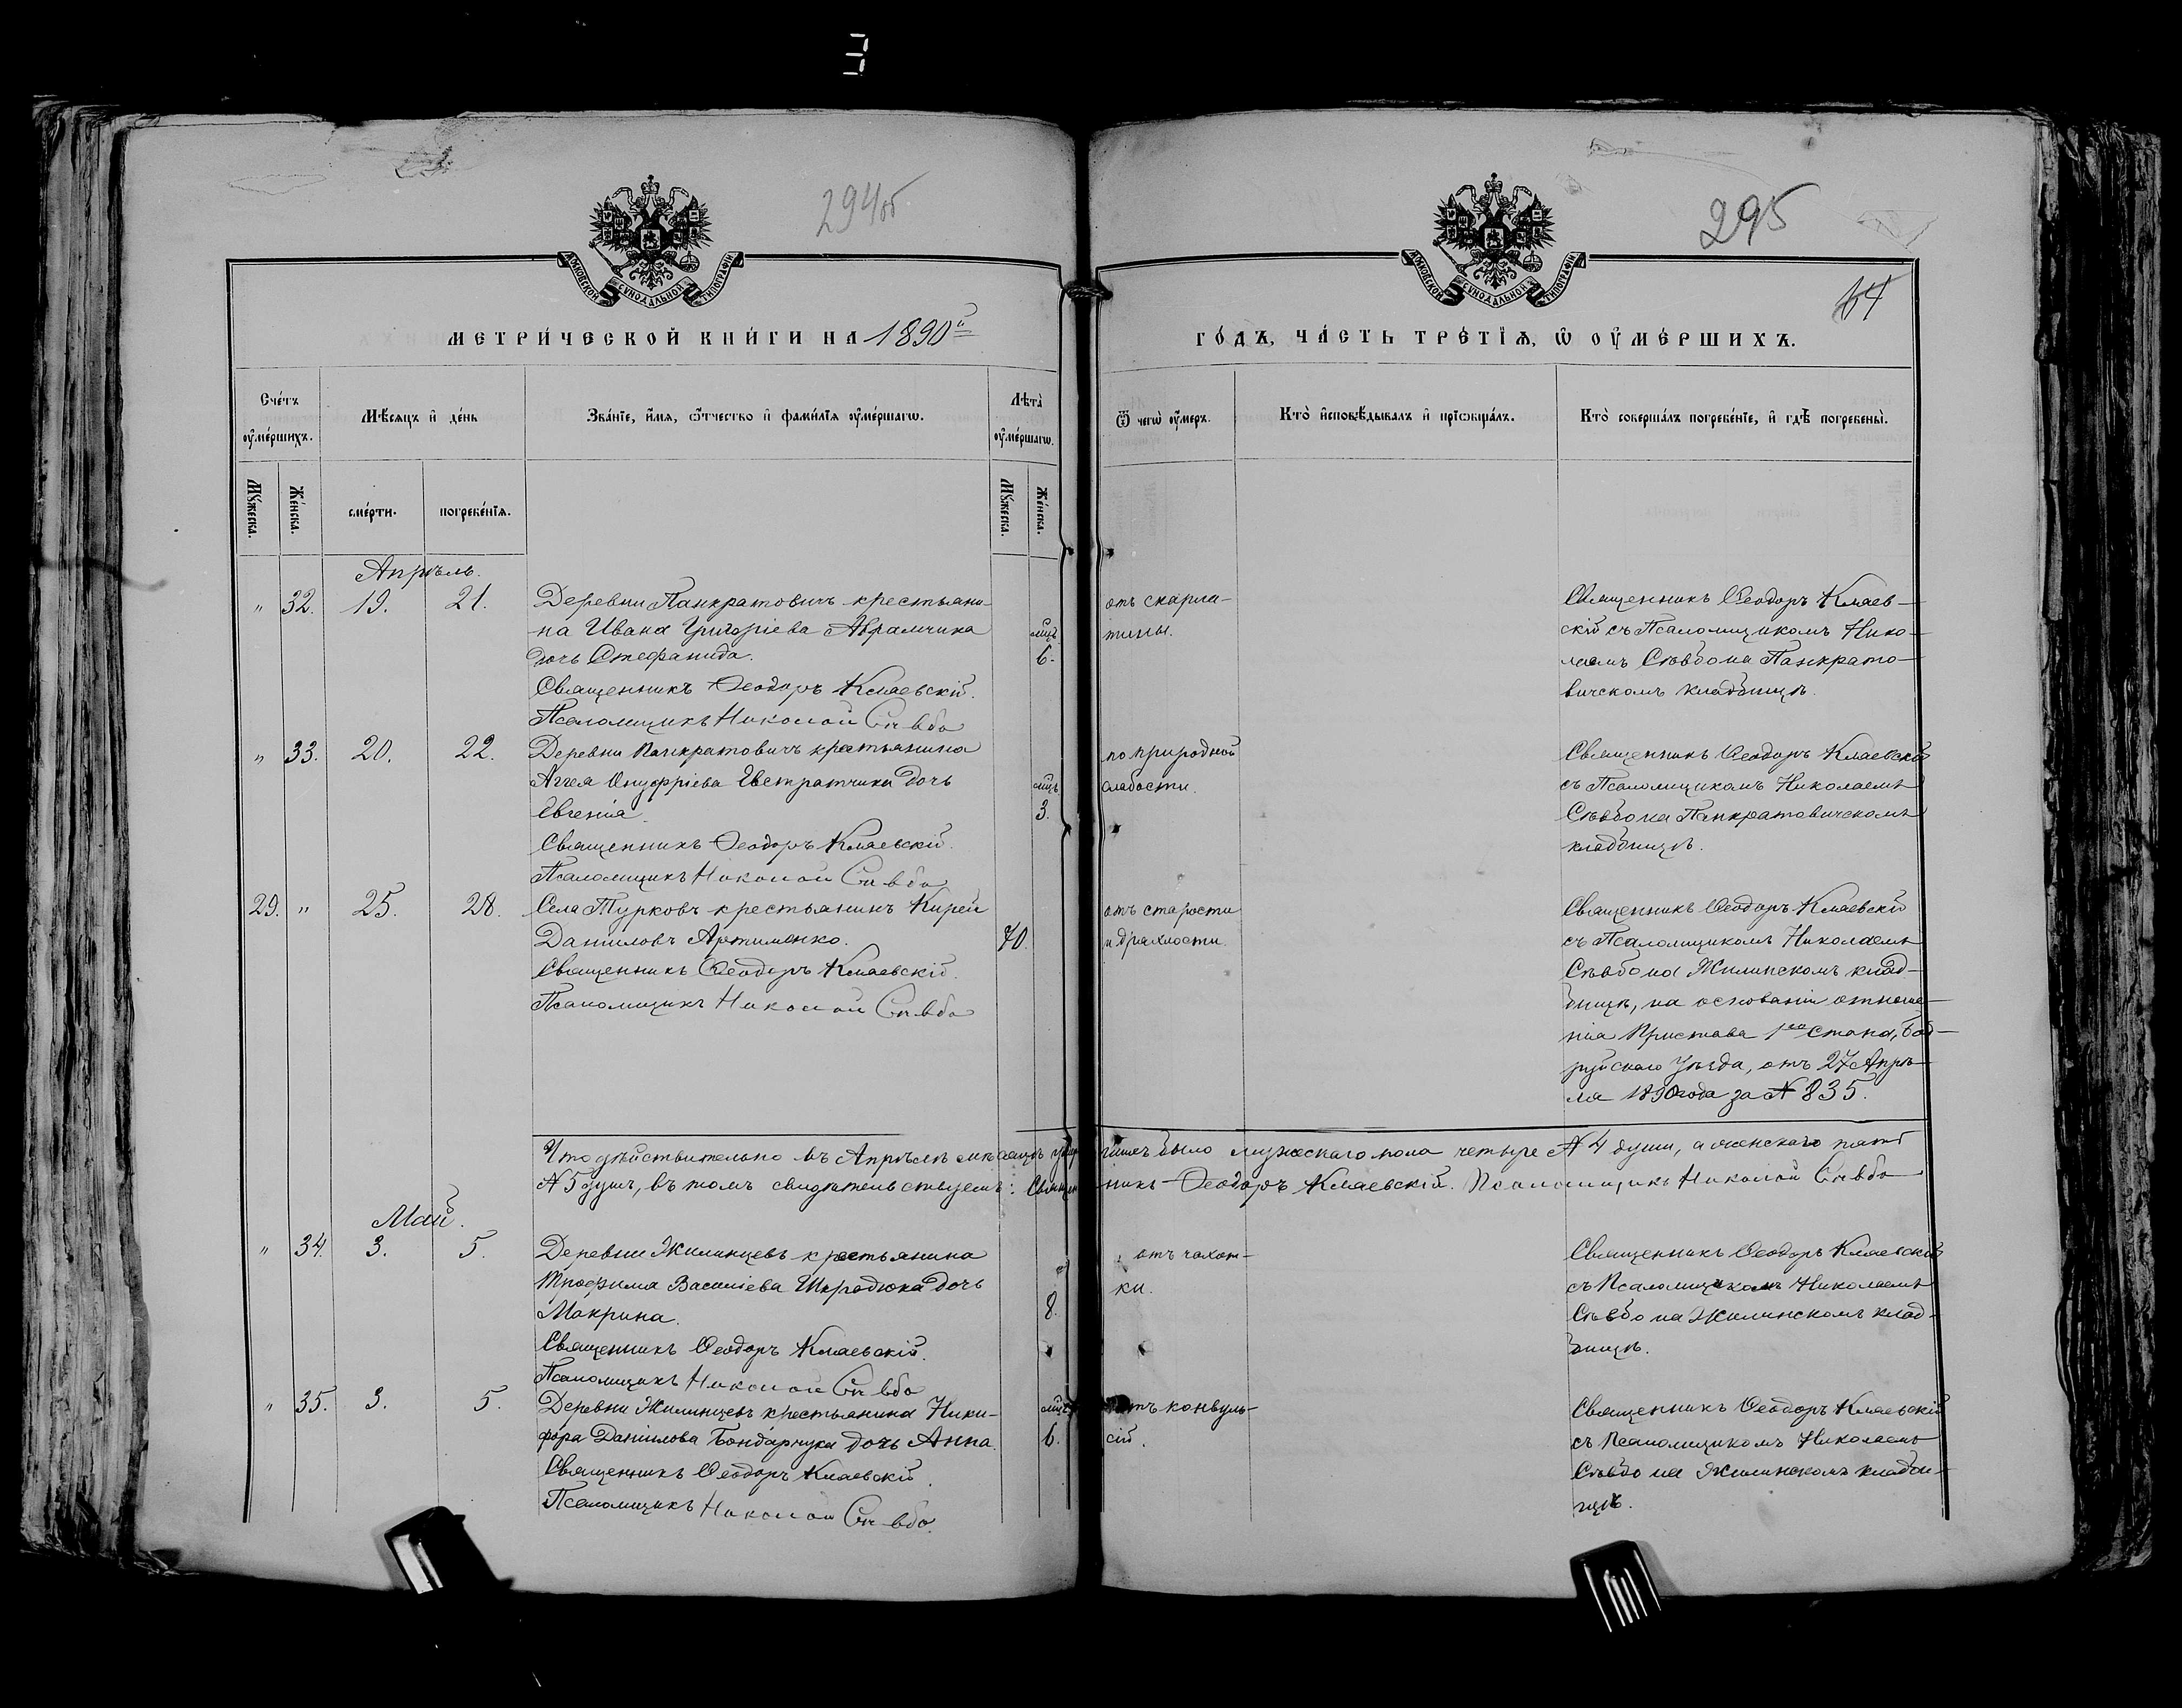 294об
295
64
МОСКОВСКОЙ СѴНОДАЛЬНОЙ ТИПОГРАФІИ
МОСКОВСКОЙ СѴНОДАЛЬНОЙ ТИПОГРАФІИ
МЕТРИ́ЧЕСКОЙ КНИ́ГИ НА 1890й
ГО́ДЪ, ЧА́СТЬ ТРЕ́ТЇѦ, Ѡ҆ ОУ҆МЕ́РШИХЪ.
Сче́тъ оу҆ме́ршихъ.
Мѣ́сяцъ и҆ де́нь
Зва́нїе, и҆́мѧ, ѻ҆́тчество и҆ фами́лїѧ оу҆ме́ршагѡ.
Лѣта̀ оу҆ме́ршагѡ.
Ѿ чегѡ̀ оу҆́меръ.
Кто̀ и҆сповѣ́дывалъ и҆ прїѡбща́лъ.
Кто̀ соверша́лъ погребе́нїе, и҆ гдѣ̀ погребены̀.
Му́жеска.
Же́нска.
сме́рти.
погребе́нїѧ.
Му́жеска.
Же́нска.
Апрѣль.
" 32. 19. 21. Деревни Панкратовичъ крестьяни-
на Ивана Григоріева Абрамчика мѣц
дочь Стефанида. 6.
Священникъ Ѳеодоръ Кмаевскій.
Псаломщикъ Николай Сѣвбо
отъ скарла-
тины.
Священникъ Ѳеодоръ Кмаев-
скій съ Псаломщикомъ Нико-
лаемъ Сѣвбо на Панкрато-
вичскомъ кладбищѣ.
" 33. 20. 22. Деревни Панкратовичъ крестьянина
Аггея Онуфріева Евстратчика дочь мѣц
Евгенія. 3.
Священникъ Ѳеодоръ Кмаевскій.
Псаломщикъ Николай Сѣвбо
по природной
слабости.
Священникъ Ѳеодоръ Кмаевскій
съ Псаломщикомъ Николаемъ
Сѣвбо на Панкратовичскомъ
кладбищѣ.
29. " 25. 28. Села Турковъ крестьянинъ Кирей
Даниловъ Артименко. 70.
Священникъ Ѳеодоръ Кмаевскій.
Псаломщикъ Николай Сѣвбо
отъ старости
и дряхлости.
Священникъ Ѳеодоръ Кмаевскій
съ Псаломщикомъ Николаемъ
Сѣвбо на Жилинскомъ клад-
бищѣ, на основаніи отноше-
нія Пристава 1го Стана, Боб-
руйскаго Уѣзда, отъ 27 Апрѣ-
ля 1890 года за № 835.
Что дѣйствительно въ Апрѣлѣ мѣсяцѣ умершихъ было мужескаго пола четыре № 4 души, а женскаго пять
№ 5 душъ, въ томъ свидѣтельствуемъ: Священникъ Ѳеодоръ Кмаевскій. Псаломщикъ Николай Сѣвбо
Май.
" 34. 3. 5. Деревни Жилинцевъ крестьянина
Трофима Василіева Шкродюка дочь
Макрина. 8.
Священникъ Ѳеодоръ Кмаевскій.
Псаломщикъ Николай Сѣвбо
отъ чахот-
ки.
Священникъ Ѳеодоръ Кмаевскій
съ Псаломщикомъ Николаемъ
Сѣвбо на Жилинскомъ клад-
бищѣ.
" 35. 3. 5. Деревни Жилинцевъ крестьянина Ники- мѣц
фора Данилова Бондарчука дочь Анна. 6.
Священникъ Ѳеодоръ Кмаевскій.
Псаломщикъ Николай Сѣвбо.
отъ конвуль-
сій.
Священникъ Ѳеодоръ Кмаевскій
съ Псаломщикомъ Николаемъ
Сѣвбо на Жилинскомъ кладби-
щѣ.